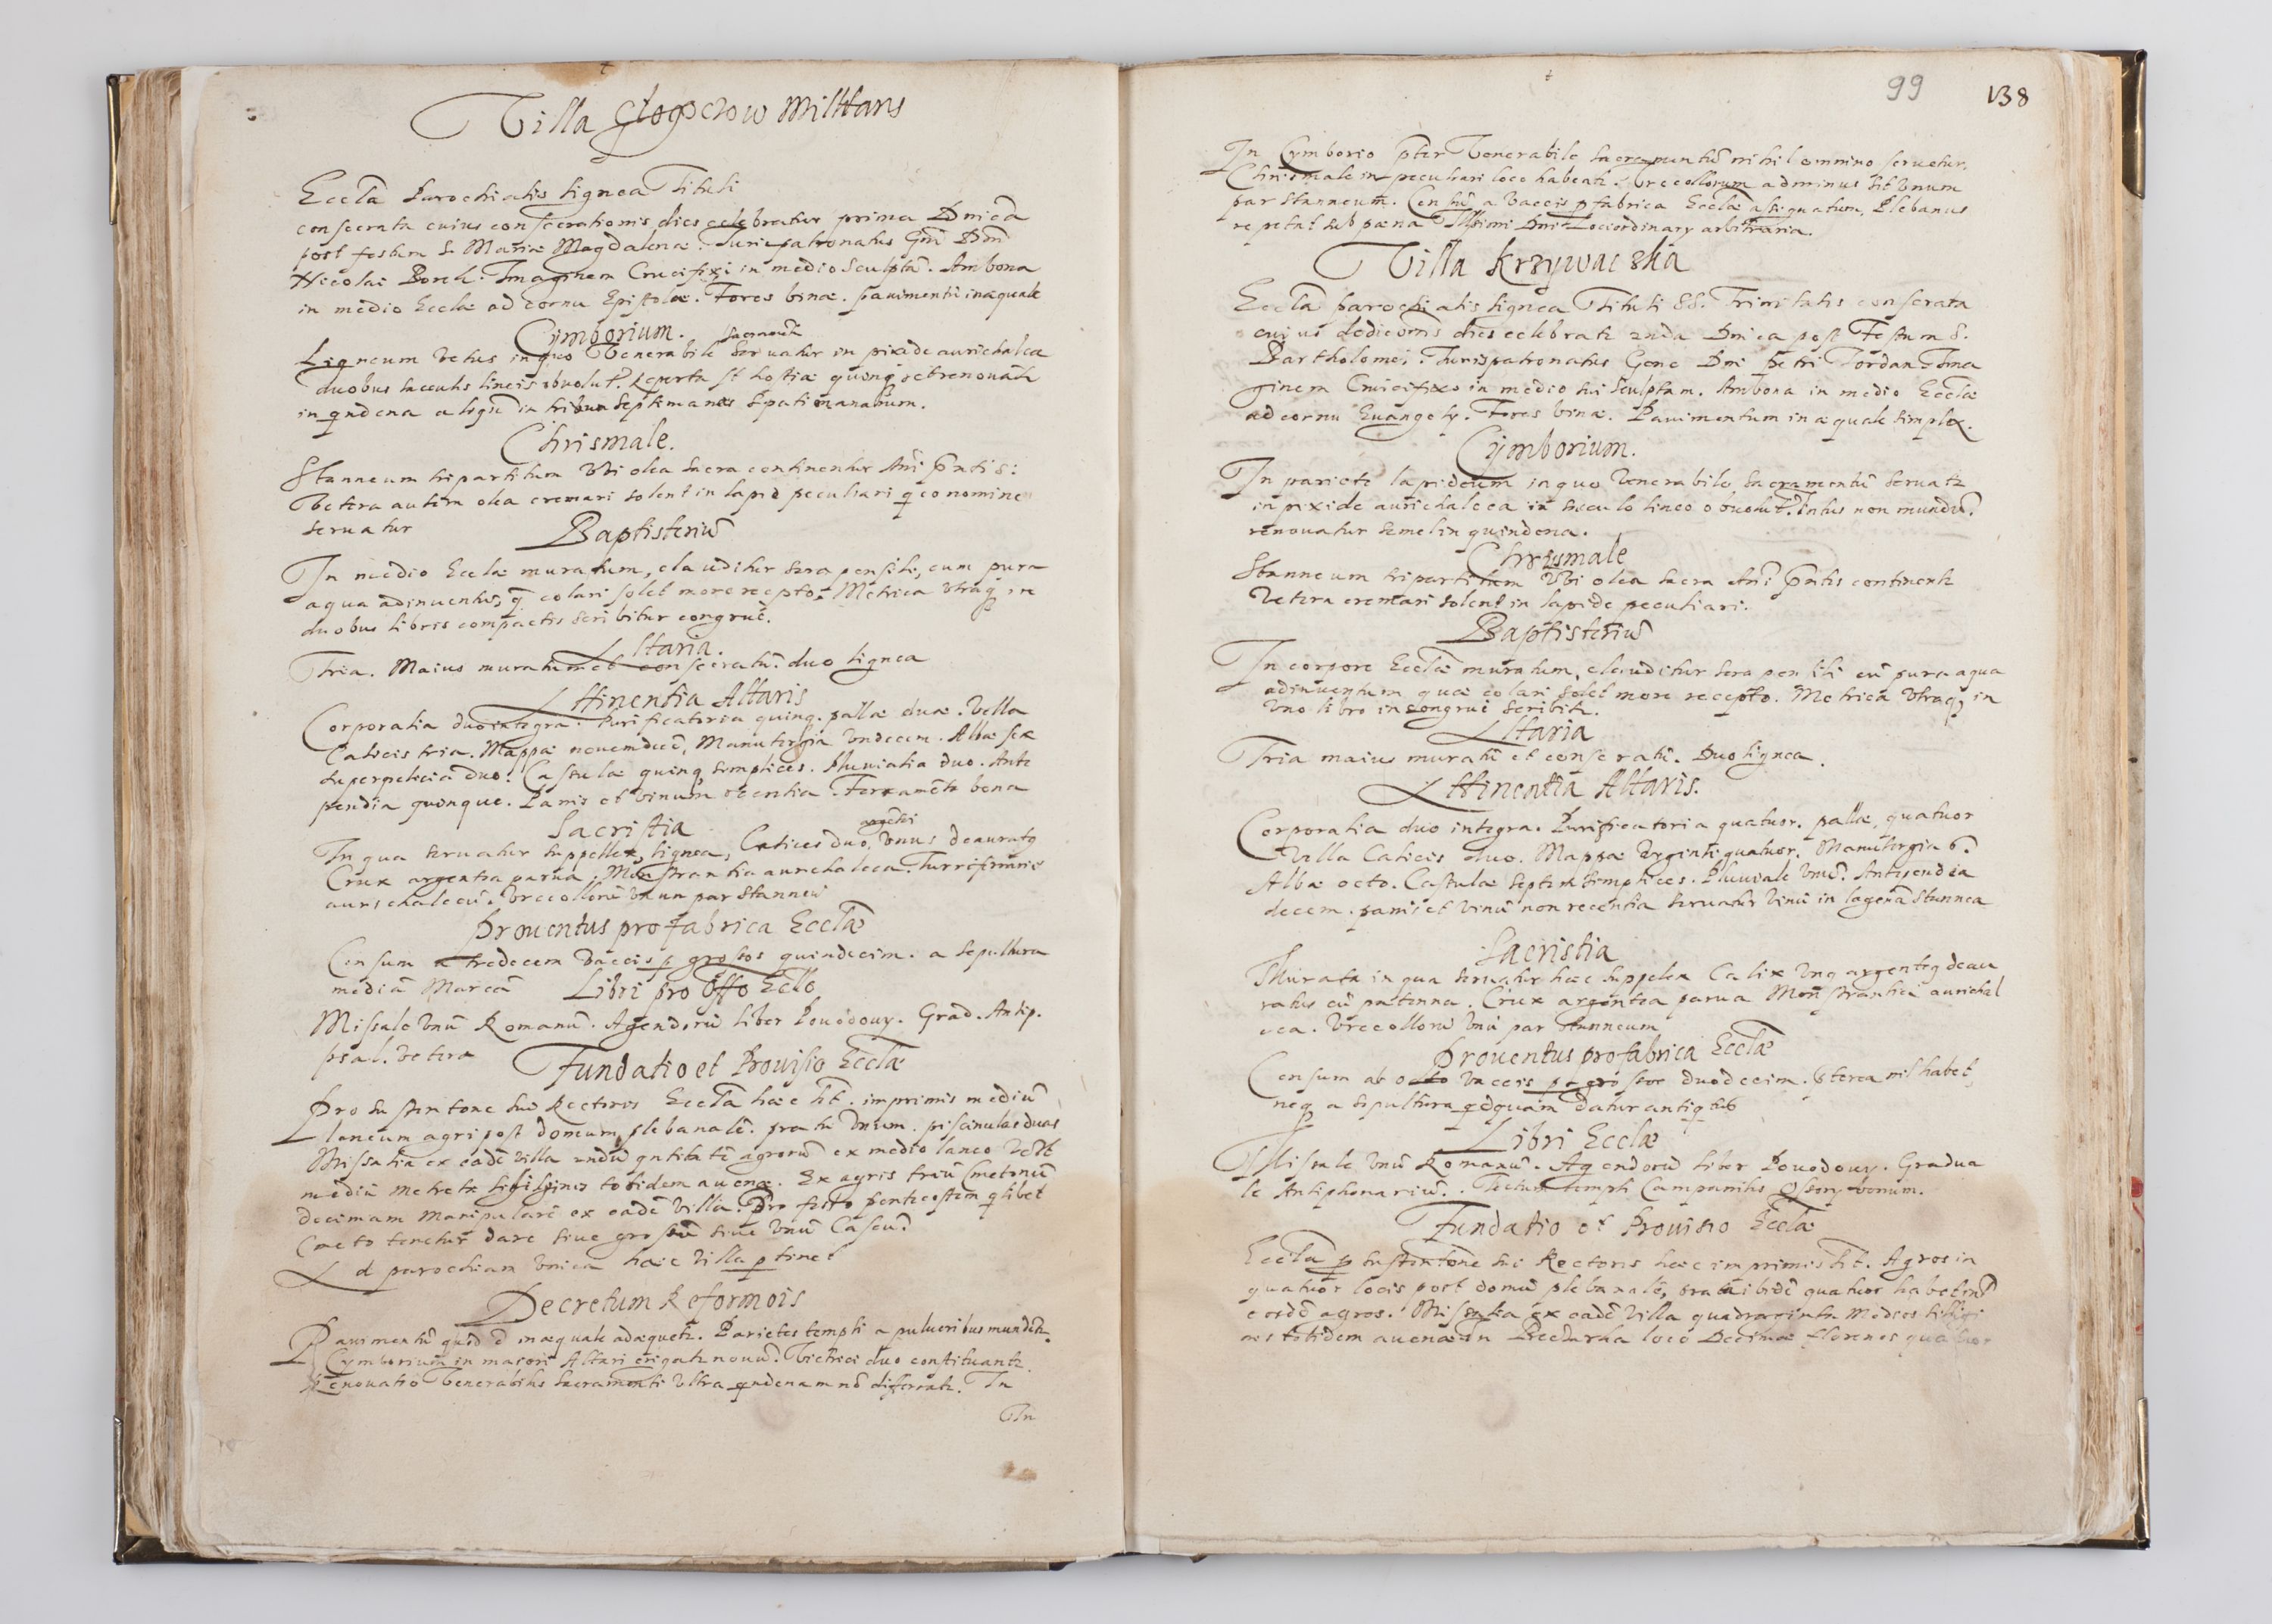 Villa Głogoczow Militaris
Eccla Parochialis lignea Tituli
consecrata cuius consecrationis dies celebratur prima Dnica
post festum S. Mariæ Magdalenæ. Iurispatronatus Gnī Dnī
Nicolai Borek. Imaginem Crucifixi in medio sculptā. Ambona
in medio Ecclæ ad cornu Epistolæ. Fores binæ. pauimentū inæquale
Cimborium.
Sacramentū
Ligneum vetus in quo Venerabile seruatur in pixide aurichalcea
duobus sacculis lineis obuolut. Reperta st hostiæ quinq et renouātr
in qndena aliqn in tribus septimanis
Chrismale.
Stanneum tripartitum vbi olea sacra continentur Anī pntis:
Vetera autem olea cremari solent in lapid peculiari q eo nomine
seruatur
Baptisteriū
In medio Ecclæ muratum, clauditur sera pensili, cum pura
aqua adinuentus, q colari solet more recepto. Metrica vtraq in
duobus libris compactis scribitur congruè.
Altaria.
Tria. Maius muratum et consecratū. duo lignea
Attinentia Altaris
Corporalia duo integra. Purificatoria quinq. pallæ duæ. Vella
Calicis tria. Mappæ nouemdecē, Manutergia vndecem. Albæ sex
superpelicia duo. Casulæ quinq simplices. Pluuialia duo. Ante
pendia quinque. Panis et vinum recentia. Ferramēta bona
Sacristia
argētei
In qua seruatur suppellex, lignea, Calices duo, vnus deauratq
Crux argentea parua. Monstrantia aurichalcea. Turriferariū
aurichalceū. Vrceollorū vnun par stanneū
Prouentus pro fabrica Ecclæ
Censum a tredecem vaccis p grossos quindecim. a sepultura
mediā Marcā
Libri pro Offo Eccło
Missale vnū Romanū. Agendorū liber Pouodouy. Grad. Antip.
psal. vetera
Fundatio et Prouisio Ecclæ
Pro sustentone sui Rectoris Eccla hæc ht. imprimis mediū
Laneum agri post domum plebanalē. pratū vnum. piscinulas duas
Missalia ex eadē villa
mediū metretæ siliginis totidem auenæ. Ex agris triū Cmetonū
decimam manipularē ex eadē villa. Pro festo pentecostem qlibet
Cmeto tenetur dare siue grossū siue vnū Caseū
Ad parochiam vnica hæc villa ptinet
Decretum Reformōis
Pauimentū quod ē inæquale adæquetr. Parietes templi a pulueribus mundētr.
Cymborium in maiori Altari erigatr nouū. Victrici duo constituantr.
Renouatio Venerabilis sacramenti vltra qndenam nō differatr. In
In
99
138
In Cymborio pter Venerabile sacramentū nihil omnino seruetur.
Chrismale in peculiari loco habeatr. Vrceollorum adminus sit vnum
par stanneum. Censū a vaccis p fabrica Ecclæ assignatum, Plebanus
repetat sub pæna Illmi Dni Lociordinary arbitraria.
Villa Krzywaczka
Eccla parochialis lignea Tituli SS. Trinitatis conserata
cuius dedicōnis dies celebratr 2nda Dnica post Festum S.
Bartholomei. Iurispatronatus Gene Dni Petri Iordan. Ima
ginem Crucifixo in medio sui sculptam. Ambona in medio Ecclæ
ad cornu Euangely. Fores binæ. Pauimentum inæquale simplex.
Cymborium.
In pariete lapideum in quo Venerabile sacramentū seruatr
in pixide aurichalcea in saculo lineo obuolut. Intus non mundū.
renouatur semel in quindena.
Chrysmale
Stanneum tripartitum vbi olea sacra Anī pntis continentr
Vetera cremari solent in lapide peculiari.
Baptisteriū
In corpore Ecclæ muratum, clauditur sera pensili cū pura aqua
adinuentum quæ colari solet more recepto. Metrica vtraq in
vno libro incongruè scribitr.
Altaria
Tria maius muratū et conseratū. Duo lignea.
Attinentia Altaris.
Corporalia duo integra. Purificatoria quatuor. pallæ, quatuor
Vella Calicis duo. Mappæ viginti quatuor. Manutergia 6.
Albæ octo. Casulæ septem simplices. Pluuiale vnū. Antipendia
decem. panis et vinū non recentia seruatur vinū in lagena stannea
Sacristia
Murata in qua seruatur hæc suppelex Calix vnq argenteq deau
ratus cū patenna. Crux argentea parua Monstrantia aurichal
cea. Vrceollorū vnū par stanneum
Prouentus pro fabrica Ecclæ
Censum ab octo vaccis p grossos duodecim. Pterea nil habet,
neq a sepultura qdquam datur antiqtus
Libri Ecclæ
Missale vnū Romanū. Agendorū liber Pouodouy. Gradua
le Antiphonariū. Tectum templi Campanilis Ossory bonum.
Fundatio et Prouisio Ecclæ
Eccla p sustentone sui Rectoris hæc imprimis ht. Agros in
quatuor locis post domū plebanalē, prata ibidē quatuor habet int
eosdē agros. Missalia ex eadē villa quadraginta medios siligi
nis totidem auenæ. In loco Decimæ florenos quatuor